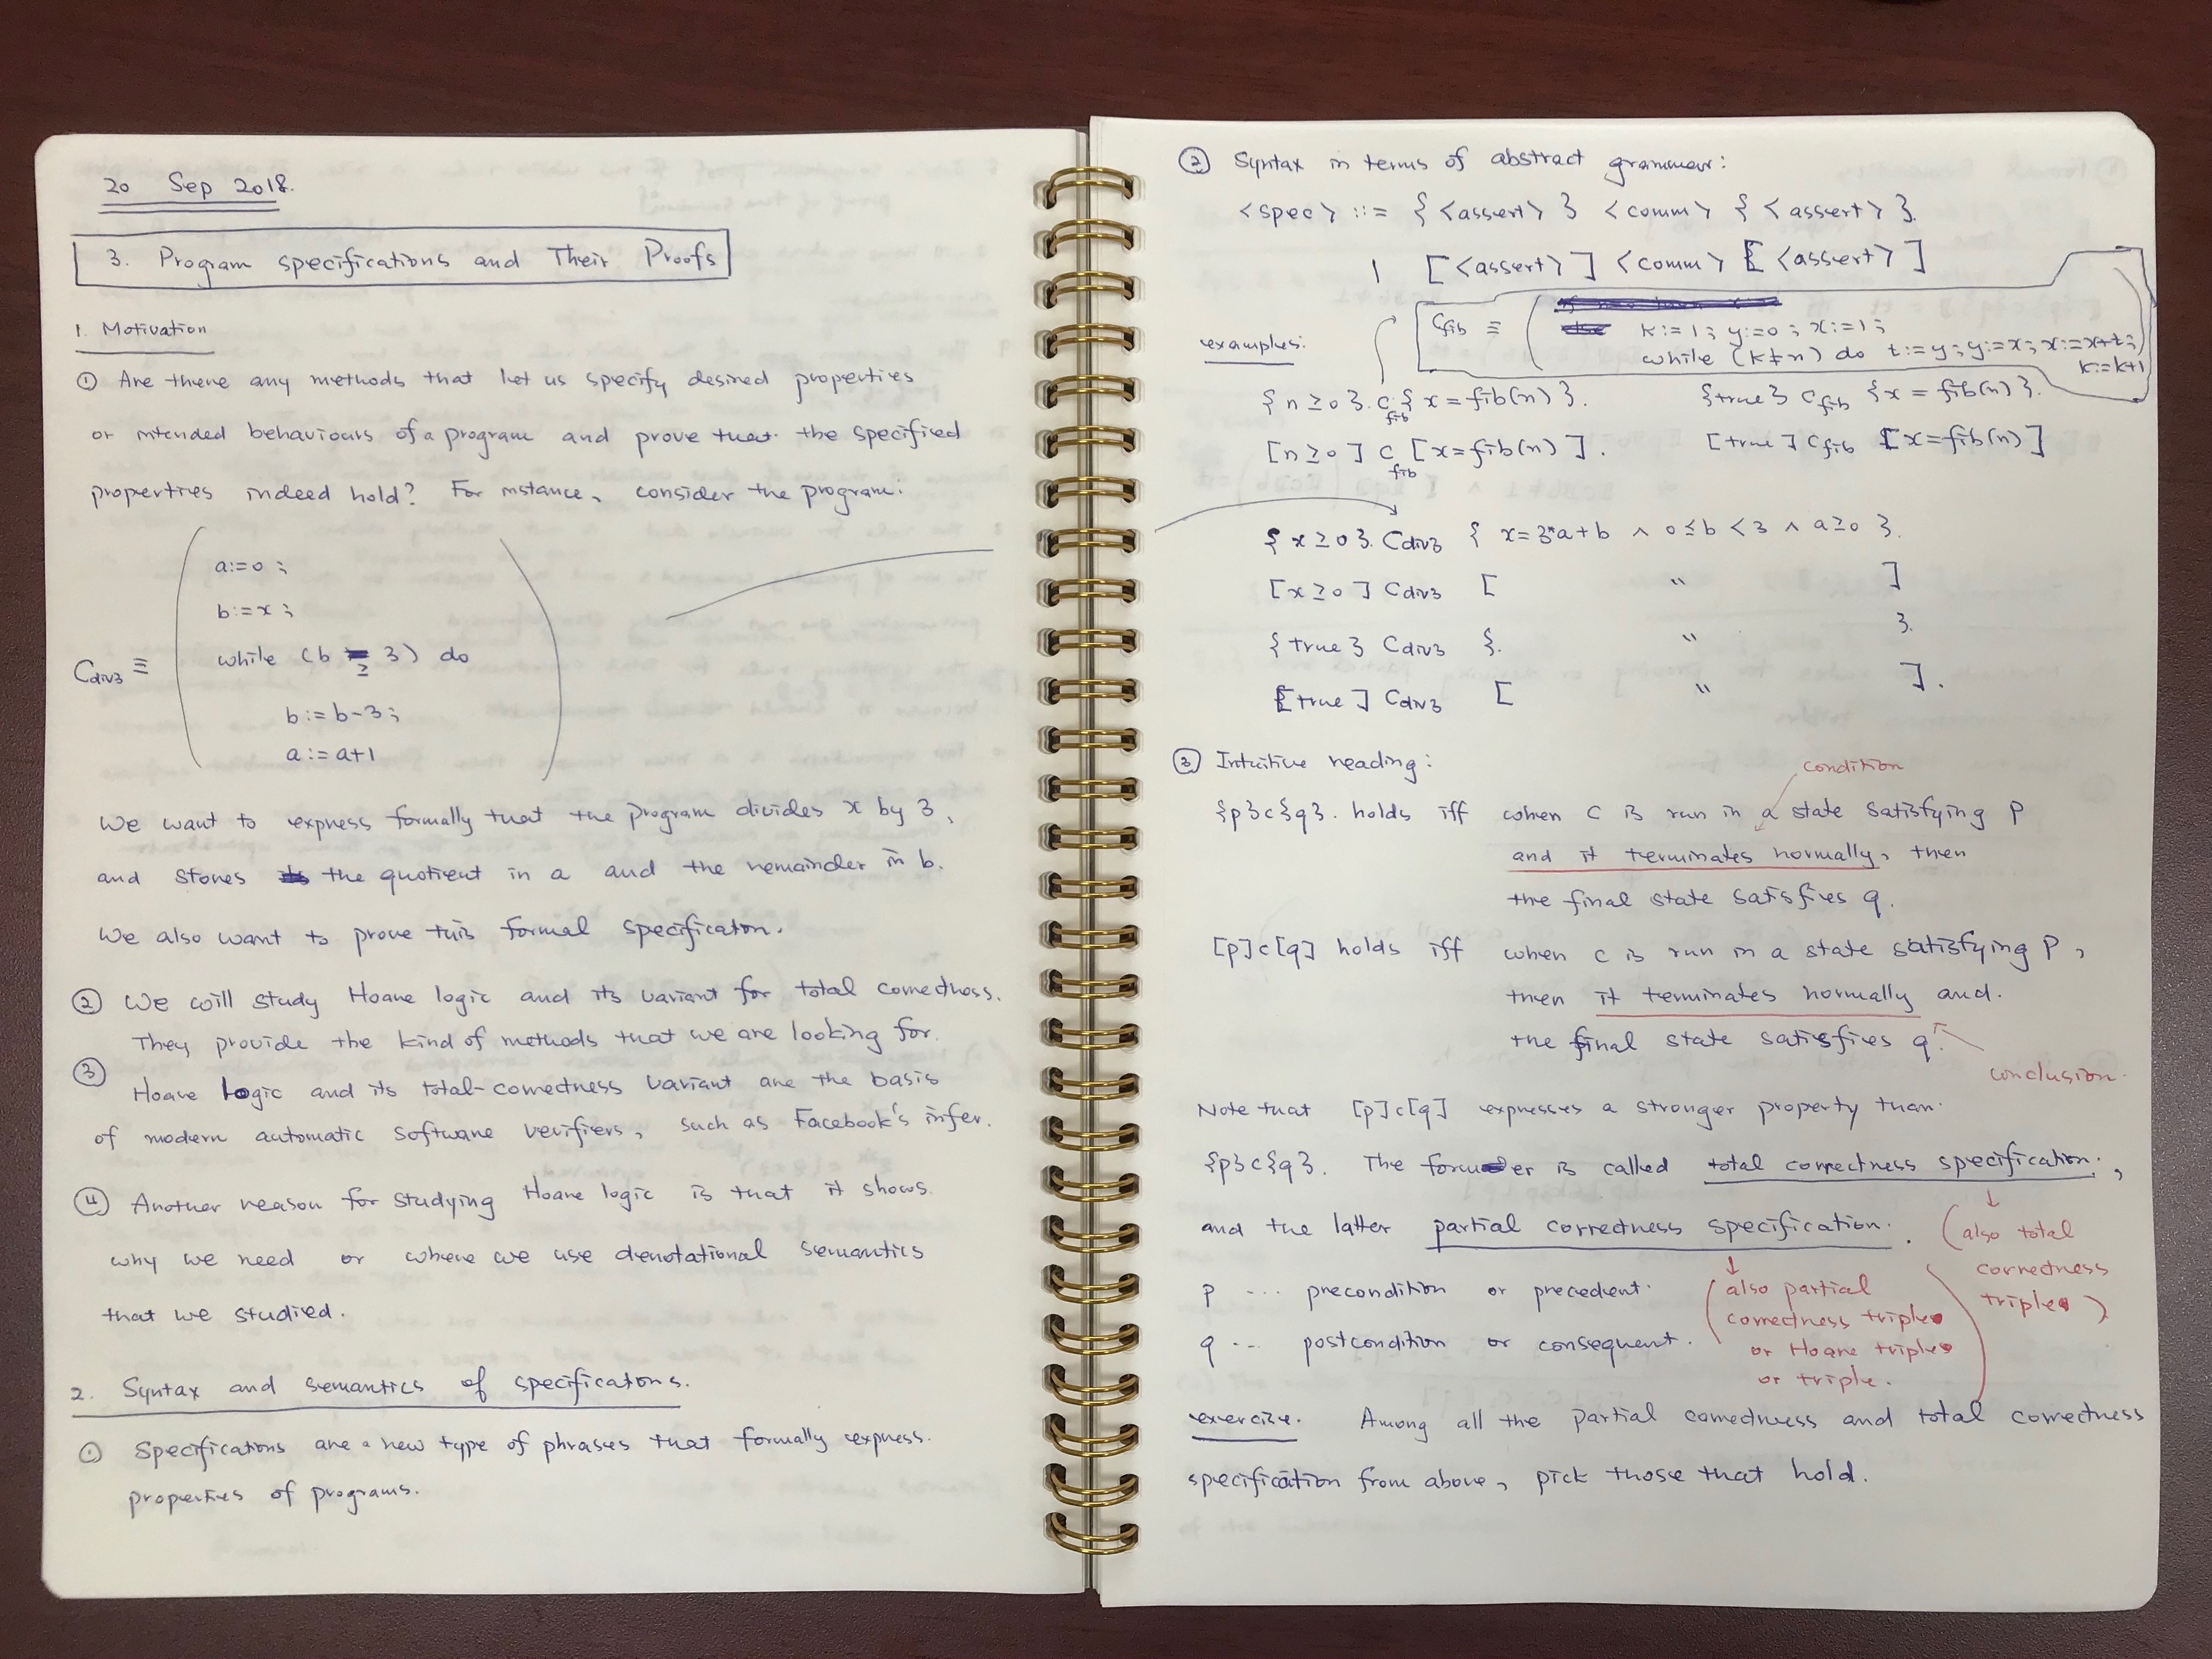 20 Sep 2018.
3. Program specifications and Their Proofs
1. Motivation
① Are there any methods that let us specify desired properties
or intended behaviours of a program and prove that the specified
properties indeed hold? For instance, consider the program:
a:=0;
b:=x;
while (b ≥ 3) do
C_div3 ≡
b:=b-3;
a:=a+1
We want to express formally that the program divides x by 3,
and stores the quotient in a and the remainder in b.
We also want to prove this formal specification.
② We will study Hoare logic and its variant for total correctness.
They provide the kind of methods that we are looking for.
③ Hoare logic and its total-correctness variant are the basis
of modern automatic software verifiers, such as Facebook's infer.
④ Another reason for studying Hoare logic is that it shows
why we need or where we use denotational semantics
that we studied.
2. Syntax and semantics of specifications.
① Specifications are a new type of phrases that formally express
properties of programs.
② Syntax in terms of abstract grammar:
<spec> ::= {<assert>} <comm> {<assert>}.
| [<assert>] <comm> [<assert>]
C_fib ≡ ( k:=1; y:=0; x:=1;
while (k≠n) do t:=y; y:=x; x:=x+t;
k:=k+1 )
examples:
{n≥0}. C_fib {x=fib(n)}. {true} C_fib {x=fib(n)}.
[n≥0] C_fib [x=fib(n)]. [true] C_fib [x=fib(n)]
{x≥0}. C_div3 { x=3*a+b ∧ 0≤b<3 ∧ a≥0 }.
[x≥0] C_div3 [ " ]
{true} C_div3 { " }.
[true] C_div3 [ " ].
③ Intuitive reading:
condition
{p}c{q}. holds iff when c is run in a state satisfying p
and it terminates normally, then
the final state satisfies q.
[p]c[q] holds iff when c is run in a state satisfying p,
then it terminates normally and
the final state satisfies q.
conclusion.
Note that [p]c[q] expresses a stronger property than
{p}c{q}. The former is called total correctness specification,
and the latter partial correctness specification.
(also total
correctness
triple)
p ... precondition or precedent.
q ... postcondition or consequent.
(also partial
correctness triple
or Hoare triple
or triple.
exercise. Among all the partial correctness and total correctness
specification from above, pick those that hold.